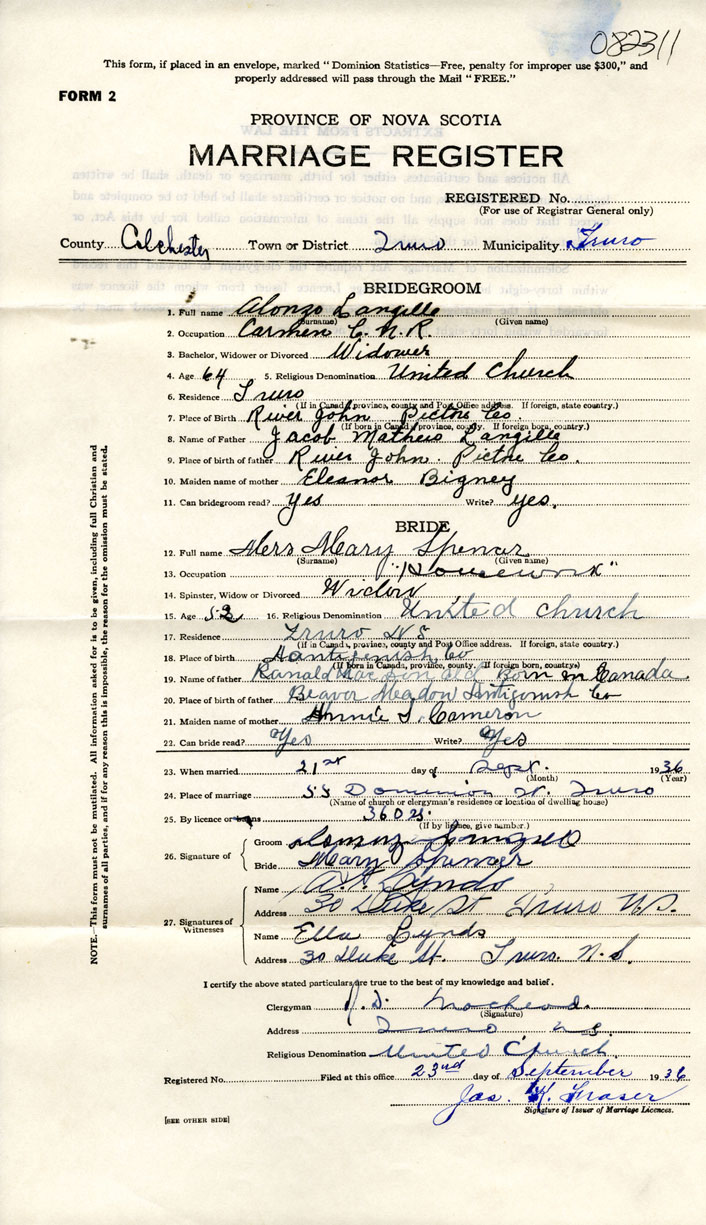 082311
This form, if placed in an envelope, marked "Dominion Statistics—Free, penalty for improper use $300," and
properly addressed will pass through the Mail "FREE."
FORM 2
PROVINCE OF NOVA SCOTIA
MARRIAGE REGISTER
REGISTERED No.
(For use of Registrar General only)
County Colchester Town or District Truro Municipality Truro
BRIDEGROOM
1. Full name Alonzo Langille
(Surname) (Given name)
2. Occupation Carmen C.N.R.
3. Bachelor, Widower or Divorced Widower
4. Age 64 5. Religious Denomination United Church
6. Residence Truro
(If in Canada, province, county and Post Office address. If foreign, state country.)
7. Place of Birth River John Pictou Co.
(If born in Canada, province, county. If foreign born, country.)
8. Name of Father Jacob Mathew Langille
9. Place of birth of father River John. Pictou Co.
10. Maiden name of mother Eleanor Bigney
11. Can bridegroom read? Yes Write? yes.
BRIDE
12. Full name Mrs Mary Spencer
(Surname) (Given name)
13. Occupation "Housework"
14. Spinster, Widow or Divorced Widow
15. Age 52 16. Religious Denomination United Church
17. Residence Truro N S
(If in Canada, province, county and Post Office address. If foreign, state country.)
18. Place of birth Antigonish Co
(If born in Canada, province, county. If foreign born, country)
19. Name of father Ranald MacDonald Born in Canada
20. Place of birth of father Beaver Meadow Antigonish Co
21. Maiden name of mother Annie S. Cameron
22. Can bride read? Yes Write? Yes
23. When married 21st day of Sept. 1936
(Month) (Year)
24. Place of marriage 55 Dominion St. Truro
(Name of church or clergyman's residence or location of dwelling house)
25. By licence or banns
(If by licence, give number.)
26. Signature of
Groom Alonzo Langille
Bride Mary Spencer
27. Signatures of Witnesses
Name Lynds
Address 30 Duke St Truro N.S.
Name Ella Lynds
Address 30 Duke St. Truro. N.S.
I certify the above stated particulars are true to the best of my knowledge and belief.
Clergyman MacLeod.
(Signature)
Address Truro N.S.
Religious Denomination United Church.
Registered No. Filed at this office 23rd day of September 1936
Jas. Fraser
Signature of Issuer of Marriage Licences.
[SEE OTHER SIDE]
NOTE.—This form must not be mutilated. All information asked for is to be given, including full Christian and
surnames of all parties, and if for any reason this is impossible, the reason for the omission must be stated.